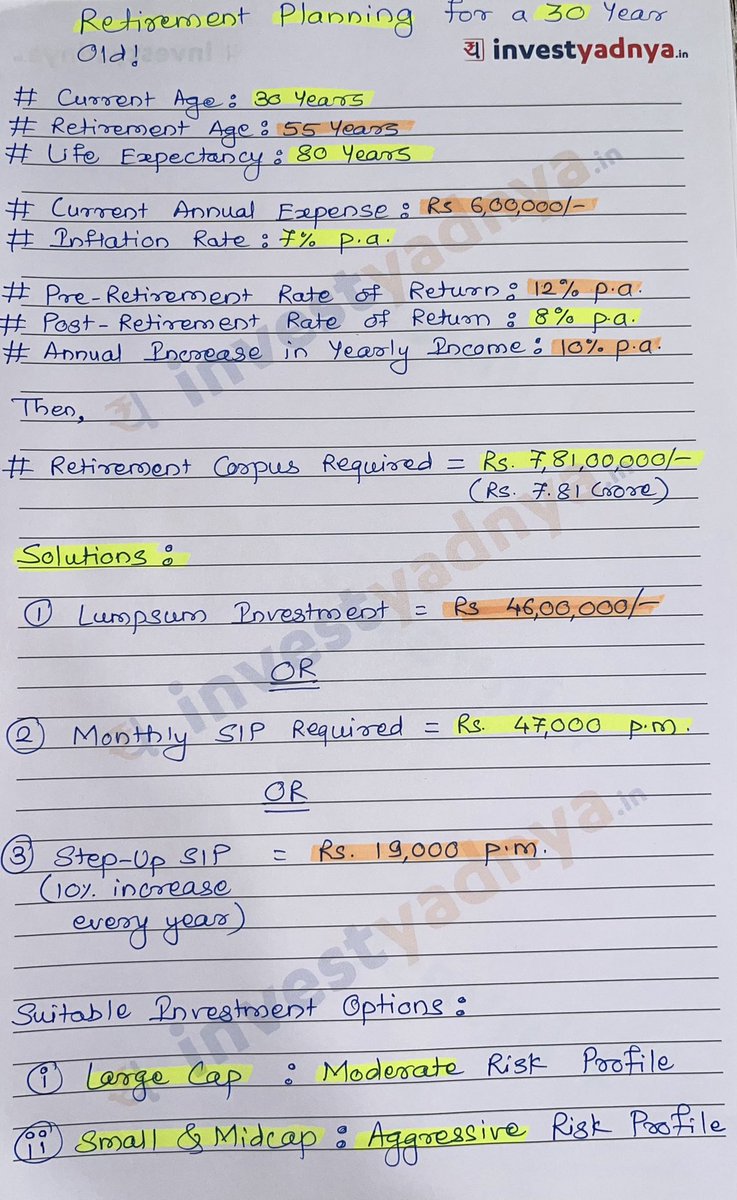 Retirement Planning for a 30 Year
Old!
य investyadnya.in
# Current Age : 30 Years
# Retirement Age : 55 Years
# Life Expectancy : 80 Years
# Current Annual Expense : Rs 6,00,000/-
# Inflation Rate : 7% p.a.
# Pre-Retirement Rate of Return : 12% p.a.
# Post-Retirement Rate of Return : 8% p.a.
# Annual Increase in Yearly Income : 10% p.a.
Then,
# Retirement Corpus Required = Rs. 7,81,00,000/-
(Rs. 7.81 Crore)
Solutions :
① Lumpsum Investment = Rs 46,00,000/-
OR
② Monthly SIP Required = Rs. 47,000 p.m.
OR
③ Step-Up SIP = Rs. 19,000 p.m.
(10% increase
every year)
Suitable Investment Options :
ⓘ Large Cap : Moderate Risk Profile
ii Small & Midcap : Aggressive Risk Profile
investyadnya.in
investyadnya.in
investyadnya.in